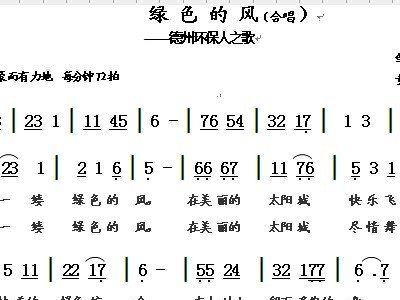 绿色的风(合唱)
——德州环保人之歌
而有力地 每分钟72拍
| 23 1 | 11 45 | 6 - | 76 54 | 32 17 | 1 3 |
23 1 | 2 1 6 | 5 - | 66 67 | 11 76 | 5 3 1
一 缕 绿色的 风。 在美丽的 太阳城 快乐飞
一 缕 绿色的 风。 在美丽的 太阳城 尽情舞
5 11 | 22 17 | 6 - | 55 24 | 32 177 | 6 . 7